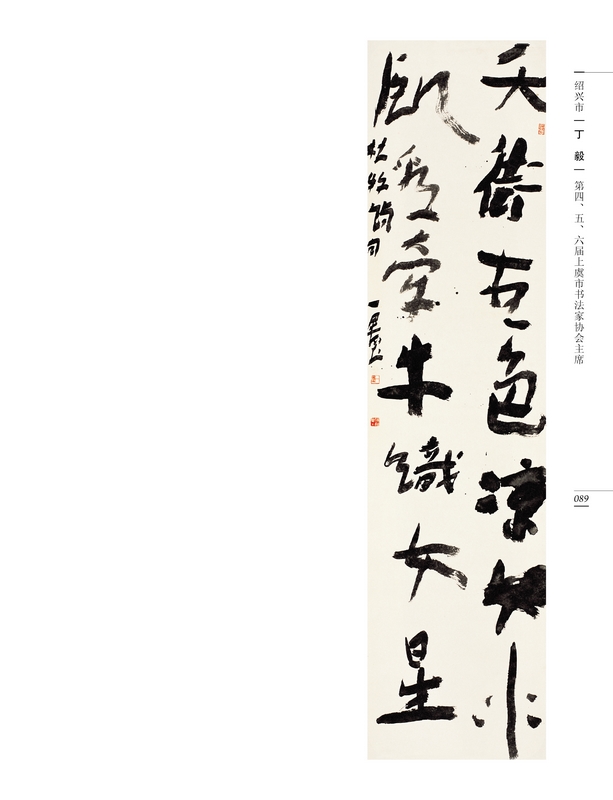 天街夜色凉如水
臥看牽牛織女星
杜牧詩句
绍兴市｜丁 毅｜第四、五、六届上虞市书法家协会主席
089